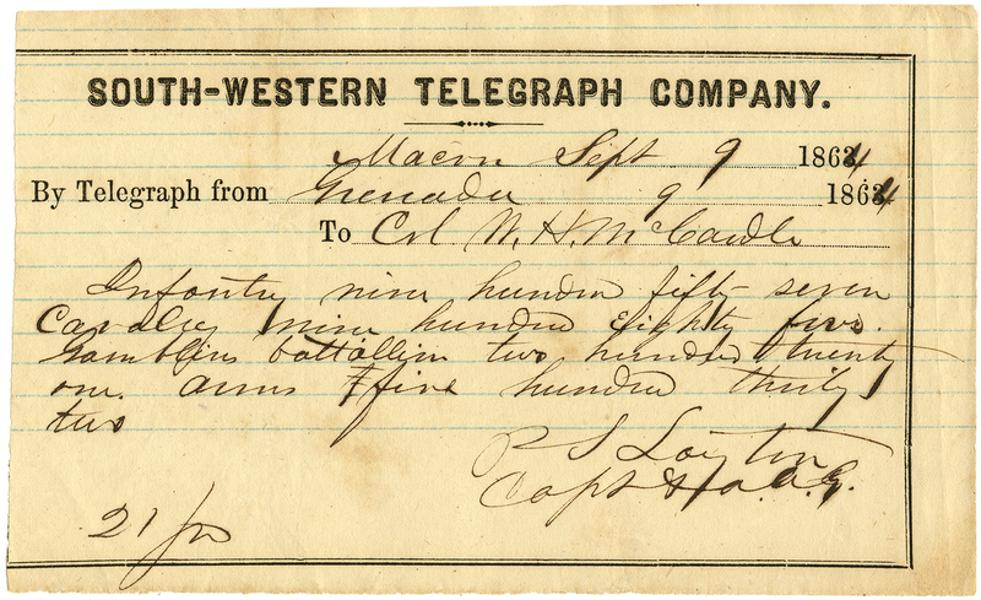 SOUTH-WESTERN TELEGRAPH COMPANY.
Macon Sept 9 1864
By Telegraph from Grenada 9 1864
To Col W. H. McCardle
Infantry nine hundred fifty seven
Cavalry nine hundred Eighty five.
Gamblins battallion two hundred twenty
one. arms five hundred thirty
two
P S Layton
Capt & a. a. G.
21